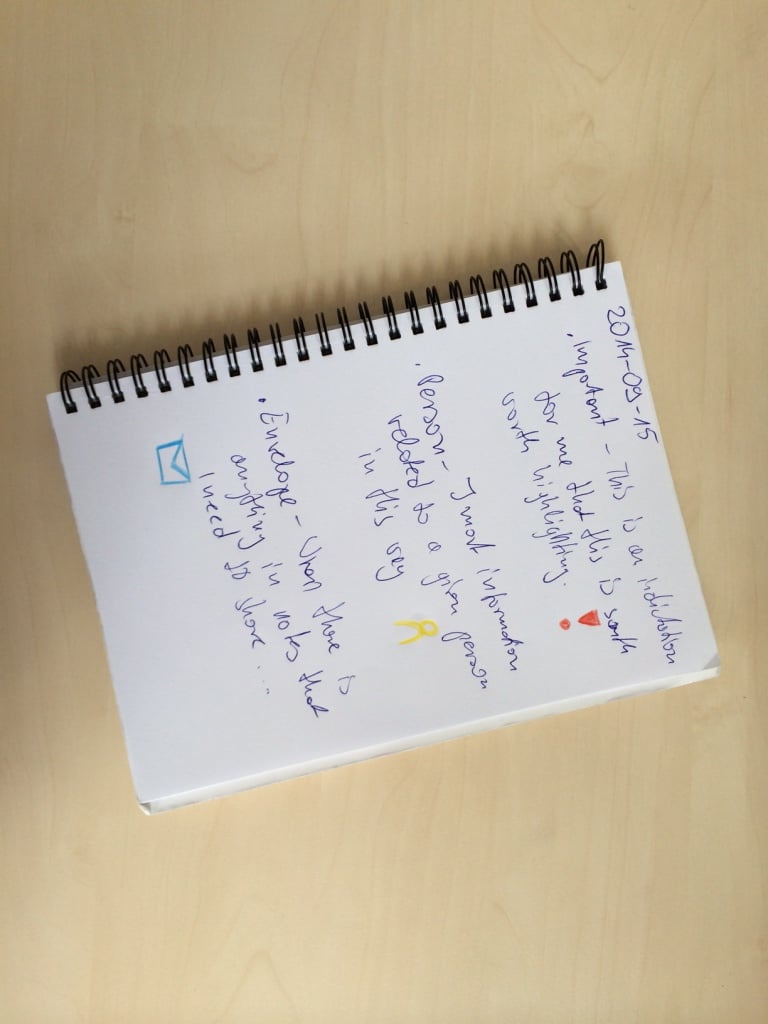 2014-09-15
• Important - This is an indictation
for me that this is sonth
worth highlighting.
• Person - I mark information
related to a given person
in this way
• Envelope - When there is
anything in notes that
I need to share ...